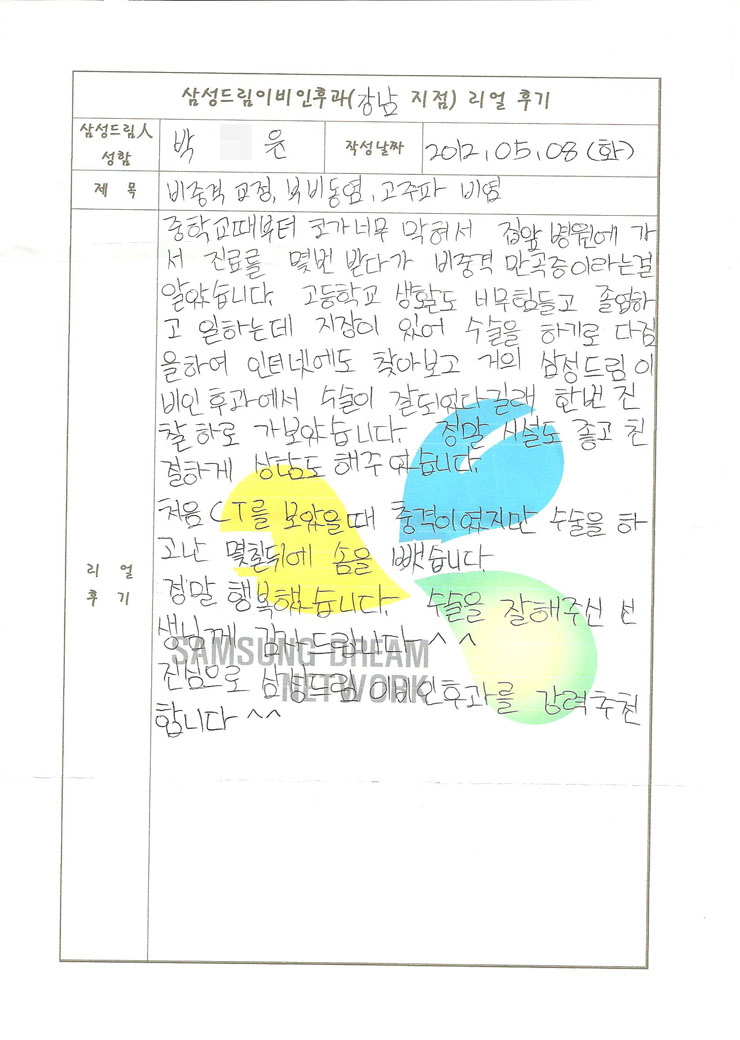 삼성드림이비인후과(강남 지점) 리얼 후기
삼성드림人 성함
박 윤
작성날짜
2012.05.08 (화)
제 목
비중격 교정, 부비동염, 고주파 비염
리 얼 후 기
중학교때부터 코가너무 막혀서 집앞 병원에 가
서 진료를 몇번 받다가 비중격 만곡증이라는걸
알았습니다. 고등학교 생활도 너무힘들고 졸업하
고 일하는데 지장이 있어 수술을 하기로 다짐
을하여 인터넷에도 찾아보고 거의 삼성드림 이
비인후과에서 수술이 잘되었다길래 한번 진
찰 하로 가보았습니다. 정말 시설도 좋고 친
절하게 상담도 해주셨습니다.
처음 CT를 보았을때 충격이였지만 수술을 하
고난 몇칠뒤에 솜을 뺏습니다.
정말 행복했습니다. 수술을 잘해주신 선
생님께 감사드립니다 ^^
진심으로 삼성드림 이비인후과를 강력추천
합니다 ^^
SAMSUNG DREAM
NETWORK